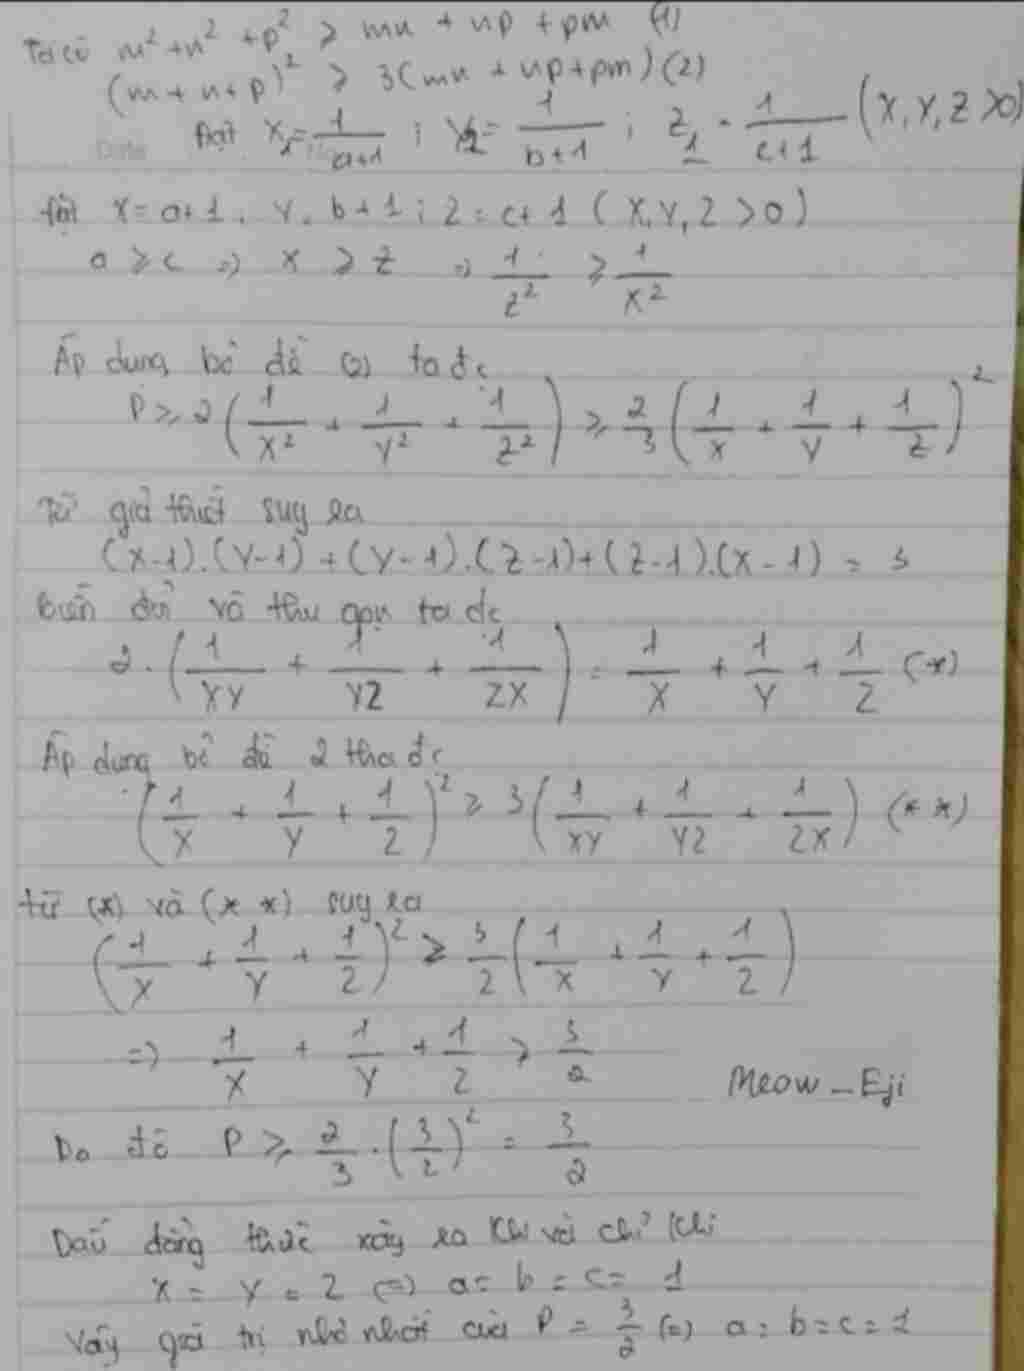 Ta có m² + n² + p² ≥ mn + np + pm (1)
(m + n + p)² ≥ 3(mn + np + pm) (2)
Đặt X₁ = 1/(a+1) ; Y₂ = 1/(b+1) ; Z₁ = 1/(c+1) (X, Y, Z >0)
đặt X = a+1, Y = b+1 ; Z = c+1 (X, Y, Z >0)
a ≥ c => X ≥ Z => 1/Z² ≥ 1/X²
Áp dụng bổ đề (2) ta đc
P ≥ 2(1/X² + 1/Y² + 1/Z²) ≥ 2/3 (1/X + 1/Y + 1/Z)²
Từ giả thiết suy ra
(X-1).(Y-1) + (Y-1).(Z-1) + (Z-1).(X-1) = 3
biến đổi và thu gọn ta đc
2.(1/XY + 1/YZ + 1/ZX) = 1/X + 1/Y + 1/Z (*)
Áp dụng bổ đề 2 ta đc
(1/X + 1/Y + 1/Z)² ≥ 3(1/XY + 1/YZ + 1/ZX) (**)
từ (*) và (**) suy ra
(1/X + 1/Y + 1/Z)² ≥ 3/2 (1/X + 1/Y + 1/Z)
=> 1/X + 1/Y + 1/Z ≥ 3/2
Meow_Eji
Do đó P ≥ 2/3 . (3/2)² = 3/2
Dấu đẳng thức xảy ra khi và chỉ khi
X = Y = Z (=) a = b = c = 1
Vậy giá trị nhỏ nhất của P = 3/2 (=) a = b = c = 1